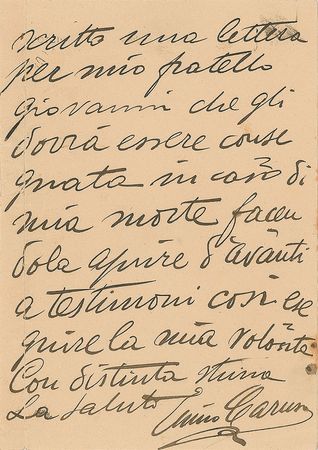 scritto una lettera
per mio fratello
giovanni che gli
dovrà essere conse
gnata in caso di
mia morte facen
dola aprire d'avanti
a testimoni così ese
guire la mia volontà
Con distinta stima
La saluto Enrico Caruso